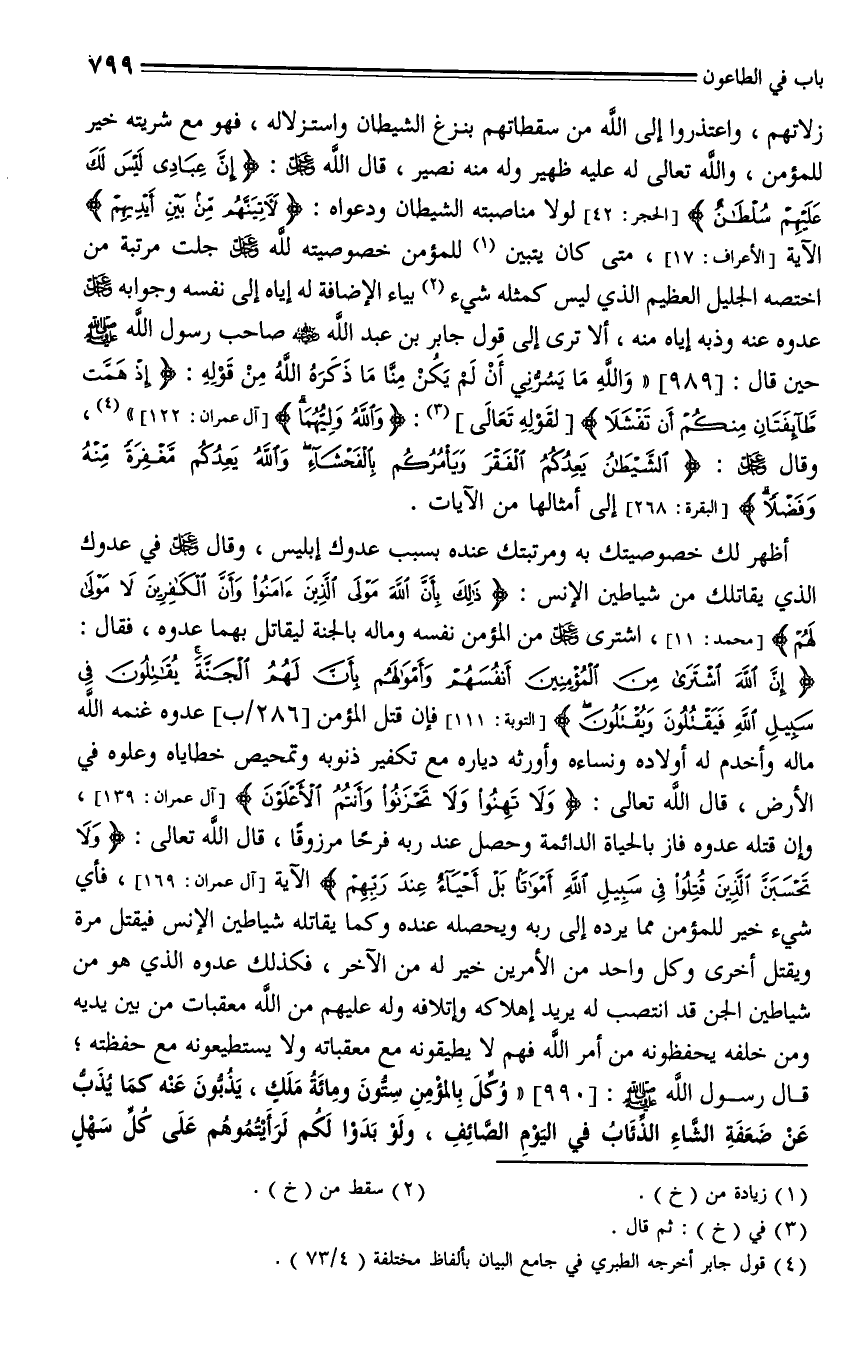 باب في الطاعون ٧٩٩
زلاتهم ، واعتذروا إلى اللَّه من سقطاتهم بنـزغ الشيطان واستـزلاله ، فهو مع شريته خير
للمؤمن ، واللَّه تعالى له عليه ظهير وله منه نصير ، قال اللَّه ﷻ : ﴿ إِنَّ عِبَادِى لَيْسَ لَكَ
عَلَيْهِمْ سُلْطَـٰنٌ ﴾ [الحجر: ٤٢] لولا مناصبته الشيطان ودعواه : ﴿ لَآتِيَنَّهُم مِّنۢ بَيْنِ أَيْدِيهِمْ ﴾
الآية [الأعراف: ١٧] ، متى كان يتبين (١) للمؤمن خصوصيته للَّه ﷻ جلت مرتبة من
اختصه الجليل العظيم الذي ليس كمثله شيء (٢) بياء الإضافة له إياه إلى نفسه وجوابه ﷻ
عدوه عنه وذبه إياه منه ، ألا ترى إلى قول جابر بن عبد اللَّه ﷺ صاحب رسول اللَّه ﷺ
حين قال : [٩٨٩] « وَاللَّهِ مَا يَسُرُّنِي أَنْ لَمْ يَكُنْ مِنَّا مَا ذَكَرَهُ اللَّهُ مِنْ قَوْلِهِ : ﴿ إِذْ هَمَّت
طَّآئِفَتَانِ مِنكُمْ أَن تَفْشَلَا ﴾ [ لقَوْلِهِ تَعَالَى ] (٣) : ﴿ وَاللَّهُ وَلِيُّهُمَا ﴾ [آل عمران: ١٢٢]» (٤) ،
وقال ﷻ : ﴿ الشَّيْطَـٰنُ يَعِدُكُمُ الْفَقْرَ وَيَأْمُرُكُم بِالْفَحْشَآءِ ۖ وَاللَّهُ يَعِدُكُم مَّغْفِرَةً مِّنْهُ
وَفَضْلًا ﴾ [البقرة: ٢٦٨] إلى أمثالها من الآيات .
أظهر لك خصوصيتك به ومرتبتك عنده بسبب عدوك إبليس ، وقال ﷻ في عدوك
الذي يقاتلك من شياطين الإنس : ﴿ ذَٰلِكَ بِأَنَّ اللَّهَ مَوْلَى الَّذِينَ ءَامَنُوا وَأَنَّ الْكَـٰفِرِينَ لَا مَوْلَىٰ
لَهُمْ ﴾ [محمد: ١١] ، اشترى ﷻ من المؤمن نفسه وماله بالجنة ليقاتل بهما عدوه ، فقال :
﴿ إِنَّ اللَّهَ اشْتَرَىٰ مِنَ الْمُؤْمِنِينَ أَنفُسَهُمْ وَأَمْوَٰلَهُم بِأَنَّ لَهُمُ الْجَنَّةَ ۚ يُقَـٰتِلُونَ فِى
سَبِيلِ اللَّهِ فَيَقْتُلُونَ وَيُقْتَلُونَ ۖ ﴾ [التوبة: ١١١] فإن قتل المؤمن [٢٨٦/ب] عدوه غنمه اللَّه
ماله وأخدم له أولاده ونساءه وأورثه دياره مع تكفير ذنوبه وتمحيص خطاياه وعلوه في
الأرض ، قال اللَّه تعالى : ﴿ وَلَا تَهِنُوا وَلَا تَحْزَنُوا وَأَنتُمُ الْأَعْلَوْنَ ﴾ [آل عمران: ١٣٩] ،
وإن قتله عدوه فاز بالحياة الدائمة وحصل عند ربه فرحًا مرزوقًا ، قال اللَّه تعالى : ﴿ وَلَا
تَحْسَبَنَّ الَّذِينَ قُتِلُوا فِى سَبِيلِ اللَّهِ أَمْوَٰتًا بَلْ أَحْيَآءٌ عِندَ رَبِّهِمْ ﴾ الآية [آل عمران: ١٦٩] ، فأي
شيء خير للمؤمن مما يرده إلى ربه ويحصله عنده وكما يقاتله شياطين الإنس فيقتل مرة
ويقتل أخرى وكل واحد من الأمرين خير له من الآخر ، فكذلك عدوه الذي هو من
شياطين الجن قد انتصب له يريد إهلاكه وإتلافه وله عليهم من اللَّه معقبات من بين يديه
ومن خلفه يحفظونه من أمر اللَّه فهم لا يطيقونه مع معقباته ولا يستطيعونه مع حفظته ؛
قال رسول اللَّه ﷺ : [٩٩٠] « وُكِّلَ بِالمُؤْمِنِ سِتُّونَ ومِائَةُ مَلَكٍ ، يَذُبُّونَ عَنْه كمَا يُذَبُّ
عَنْ ضَعَفَةِ الشَّاءِ الذِّئَابُ في اليَوْمِ الصَّائِفِ ، ولَوْ بَدَوْا لَكُم لَرَأَيْتُمُوهُم عَلَى كُلِّ سَهْلٍ
(١) زيادة من ( خ ) . (٢) سقط من ( خ ) .
(٣) في ( خ ) : ثم قال .
(٤) قول جابر أخرجه الطبري في جامع البيان بألفاظ مختلفة ( ٧٣/٤ ) .